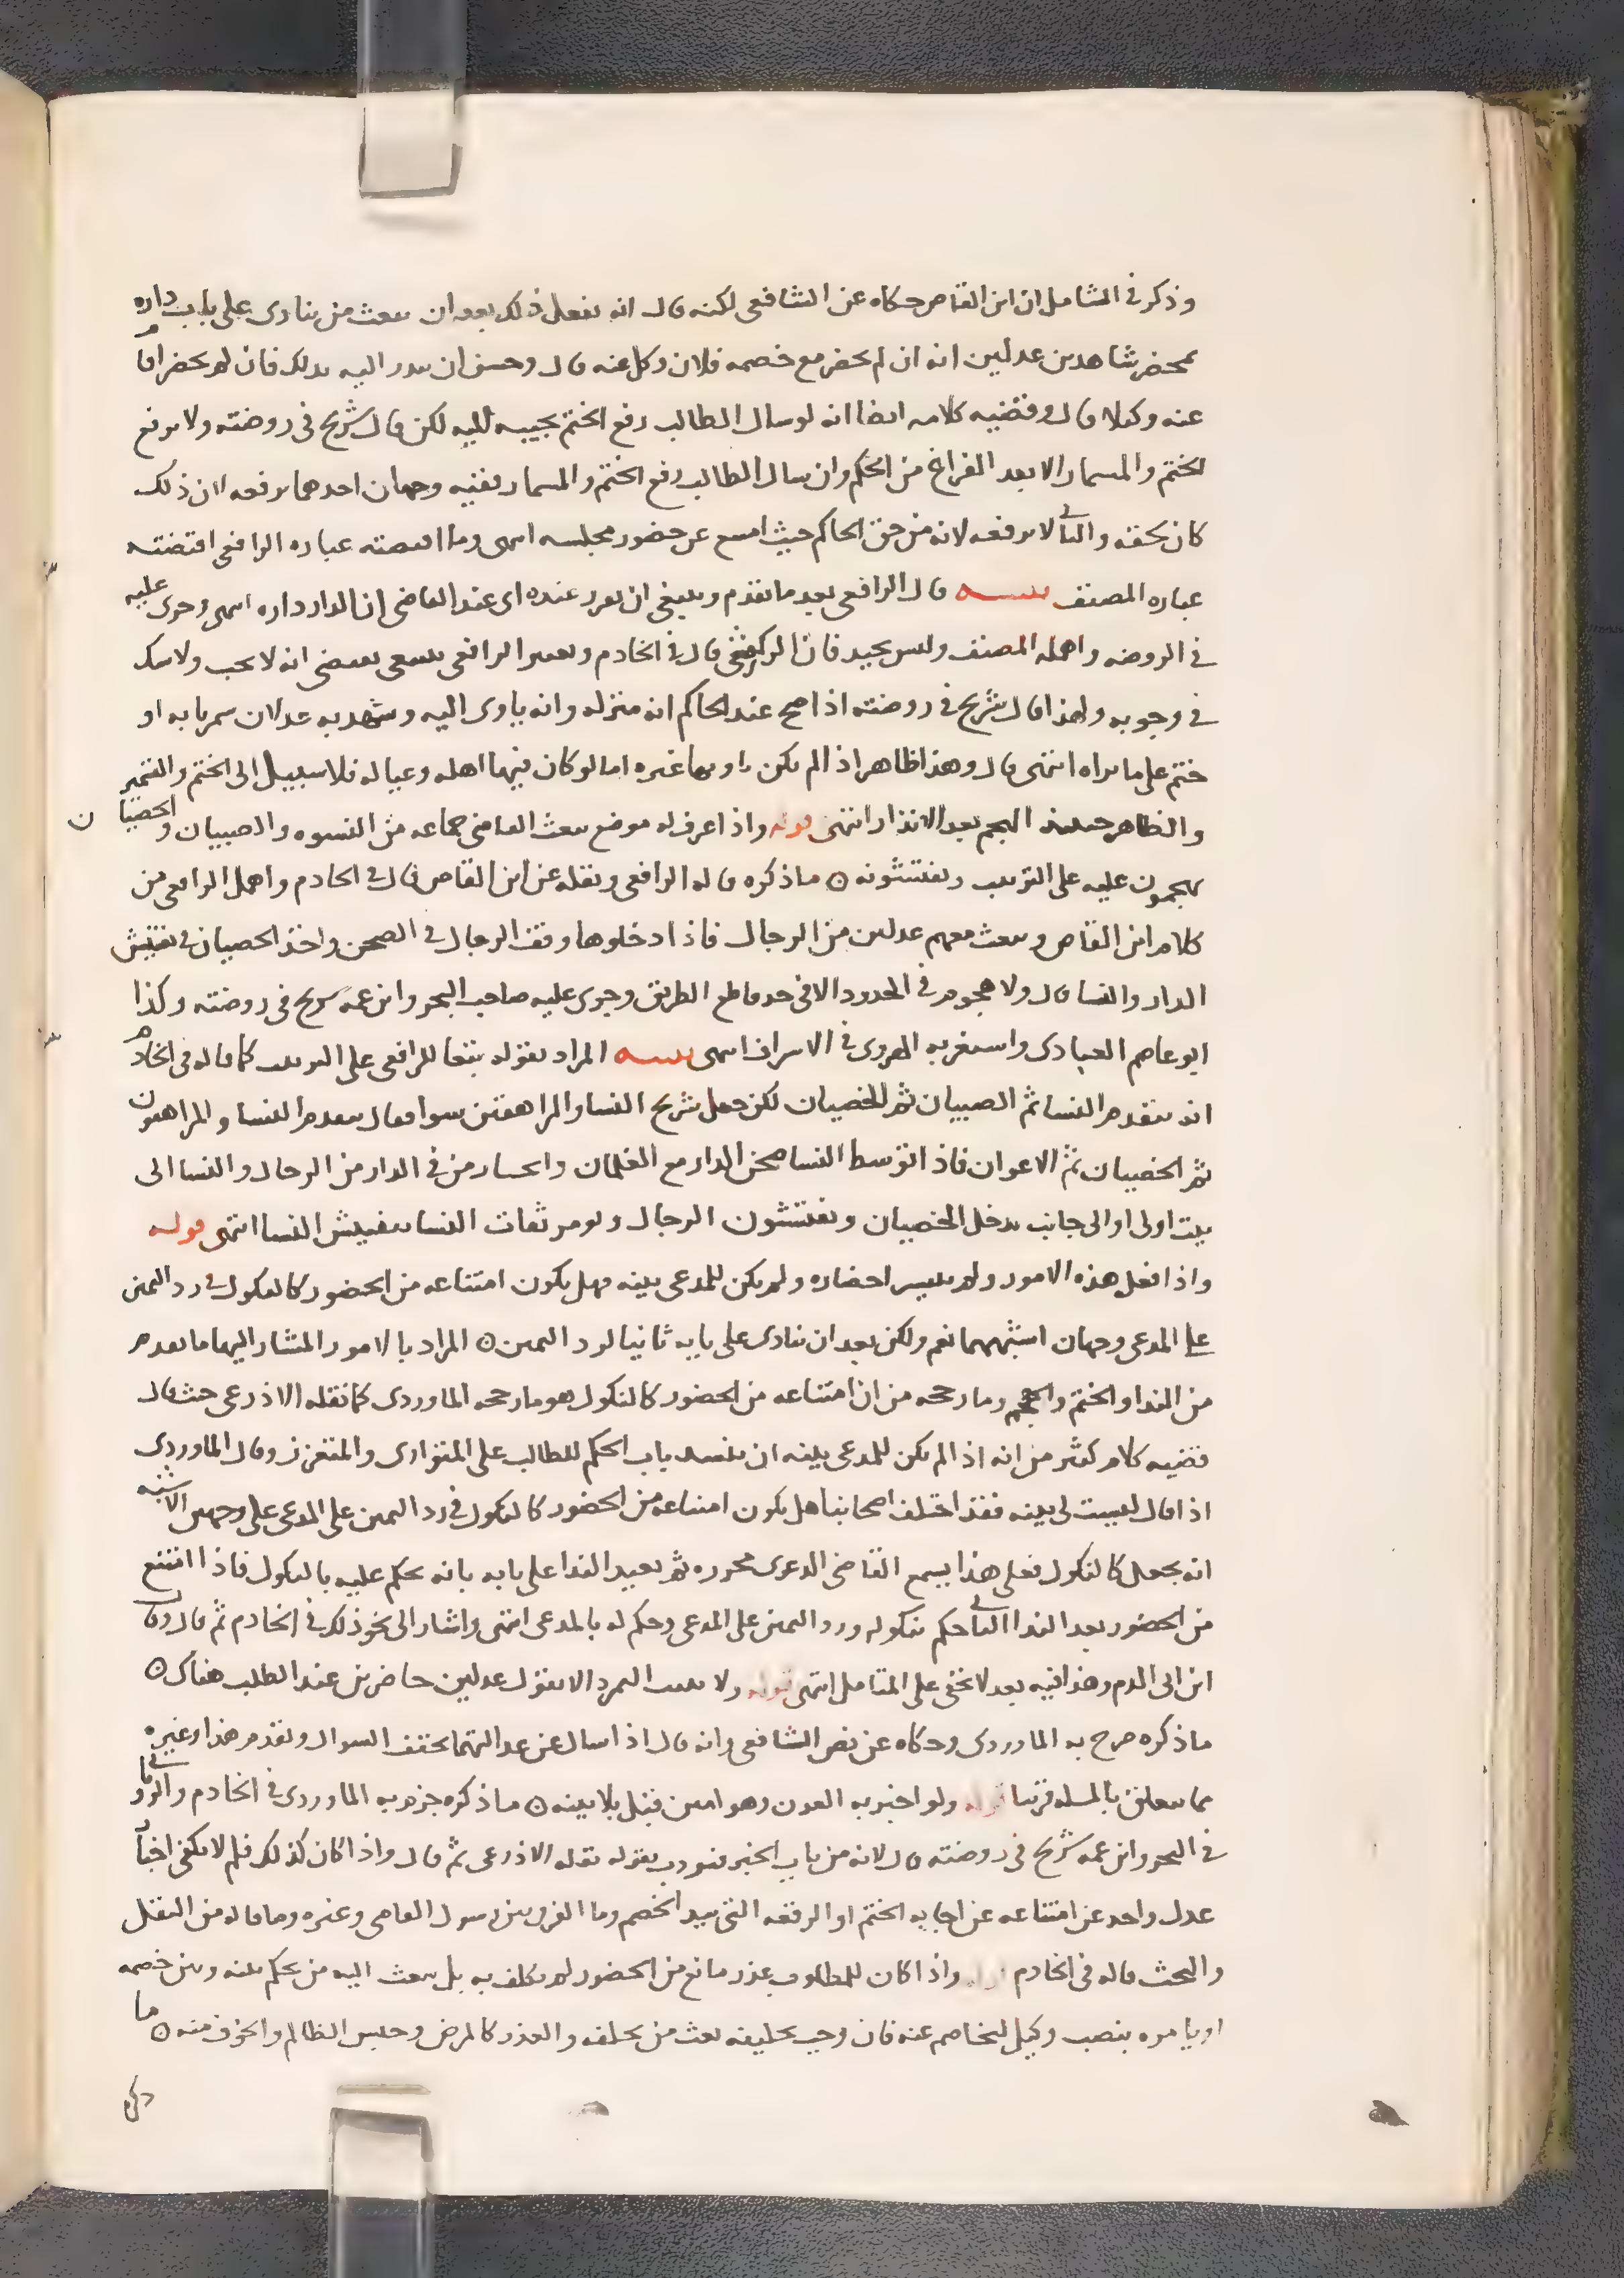 وذكر في الشامل ان ابن القاص حكاه عن الشافعي لكنه قال انه يفعل ذلك بعد ان يبعث من ينادي على باب داره
بمحضر شاهدين عدلين انه ان لم يحضر مع خصمه فلان وكل عنه قال وحسن ان ينذر اليه بذلك فان لم يحضر اقام
عنه وكيلا قال وقضيه كلامه ايضا انه لو سال الطالب رفع الختم يجيبه اليه لكن قال شريح في روضته ولا يرفع
الختم والمسمار الا بعد الفراغ من الحكم وان سال الطالب رفع الختم والمسمار ففيه وجهان احدهما يرفعه لان ذلك
كان بحقه والثاني لا يرفعه لانه من حق الحاكم حيث امتنع عن حضور مجلسه انتهى وما اقتضته عباره الرافعي اقتضته
عباره المصنف تنبيه قال الرافعي بعد ما تقدم وينبغي ان يقرر عنده اى عند القاضي ان الدار داره انتهى وجرى عليه
في الروضه واهمله المصنف وليس بجيد فان الزركشي قال في الخادم وتعبير الرافعي ينبغي يقتضي انه لا يجب ولا شك
في وجوبه ولهذا قال شريح في روضته اذا صح عند الحاكم انه منزله وانه ياوى اليه وشهد به عدلان سمر بابه او
ختم على ما يراه انتهى قال وهذا ظاهر اذا لم يكن ياويها غيره اما لو كان فيها اهله وعياله فلا سبيل الى الختم والتسمير
والظاهر حينئذ الهجم بعد الانذار انتهى قوله واذا عرف له موضع بعث القاضي جماعه من النسوه والصبيان والخصيان
يهجمون عليه على الترتيب ويفتشونه ما ذكره قاله الرافعي ونقله عن ابن القاص قال في الخادم واهمل الرافعي من
كلام ابن القاص ويبعث معهم عدلين من الرجال فاذا دخلوها وقف الرجال في الصحن واخذ الخصيان في تفتيش
الدار والنسا قال ولا هجوم في الحدود الا في حد قاطع الطريق وجرى عليه صاحب البحر وابن عمه شريح في روضته وكذا
ابو عاصم العبادى واستغربه الهروى في الاشراف انتهى تنبيه المراد بقوله تبعا للرافعي على الترتيب كما قاله في الخادم
انه يتقدم النسا ثم الصبيان ثم الخصيان لكن جعل شريح النسا والمراهقين سوا فقال يتقدم النسا والمراهقون
ثم الخصيان ثم الاعوان فاذا توسط النسا صحن الدار مع الغلمان وانحاز من في الدار من الرجال والنسا الى
بيت اولى او الى جانب يدخل الخصيان ويفتشون الرجال ويومر ثقات النسا بتفتيش النسا انتهى قوله
واذا فعل هذه الامور ولم يتيسر احضاره ولم يكن للمدعى بينه فهل يكون امتناعه من الحضور كالنكول في رد اليمين
على المدعي وجهان اشبههما نعم ولكن بعد ان ينادى على بابه ثانيا لرد اليمين المراد بالامور المشار اليها ما تقدم
من الندا والختم والهجم وما رجحه من ان امتناعه من الحضور كالنكول هو ما رجحه الماوردى كما نقله الاذرعي حيث قال
قضيه كلام كثير من انه اذا لم يكن للمدعى بينه ان ينسد باب الحكم للطالب على المتوارى والمتعزز وقال الماوردى
اذا قال ليست لي بينه فقد اختلف اصحابنا هل يكون امتناعه من الحضور كالنكول في رد اليمين على المدعى على وجهين الاشبه
انه يجعل كالنكول فعلى هذا يسمع القاضي الدعوى محرره ثم يعيد الندا على بابه بانه يحكم عليه بالنكول فاذا امتنع
من الحضور بعد الندا الثاني حكم بنكوله ورد اليمين على المدعى وحكم له بالمدعى انتهى واشار الى نحو ذلك في الخادم ثم قال وقال
ابن ابي الدم وهذا فيه بعد لا يخفى على المتامل انتهى قوله ولا يثبت التمرد الا بقول عدلين حاضرين عند الطلب هناك
ما ذكره صرح به الماوردى وحكاه عن نص الشافعي وانه قال اذا سال عن عدالتهما يخفف السوال وتقدم هذا وغيره
مما يتعلق بالمسله قريبا قوله ولو اخبر به العون وهو امين قبل بلا بينه ما ذكره جزم به الماوردى في الخادم والرويانى
في البحر وابن عمه شريح في روضته قال لانه من باب الخبر فيودب بقوله نقله الاذرعى ثم قال واذا كان كذلك فلم لا يكفى اخبار
عدل واحد عن امتناعه عن اجابه الختم او الرقعه التي بيد الخصم وما الفرق بين رسول القاضي وغيره وما قاله من النقل
والبحث قاله في الخادم قوله واذا كان للمطلوب عذر مانع من الحضور لم يكلف به بل يبعث اليه من يحكم بينه وبين خصمه
او يامره بنصب وكيل ليخاصم عنه فان وجب تحليفه بعث من يحلفه والعذر كالمرض وحبس الظالم والخوف منه ما
ذكره